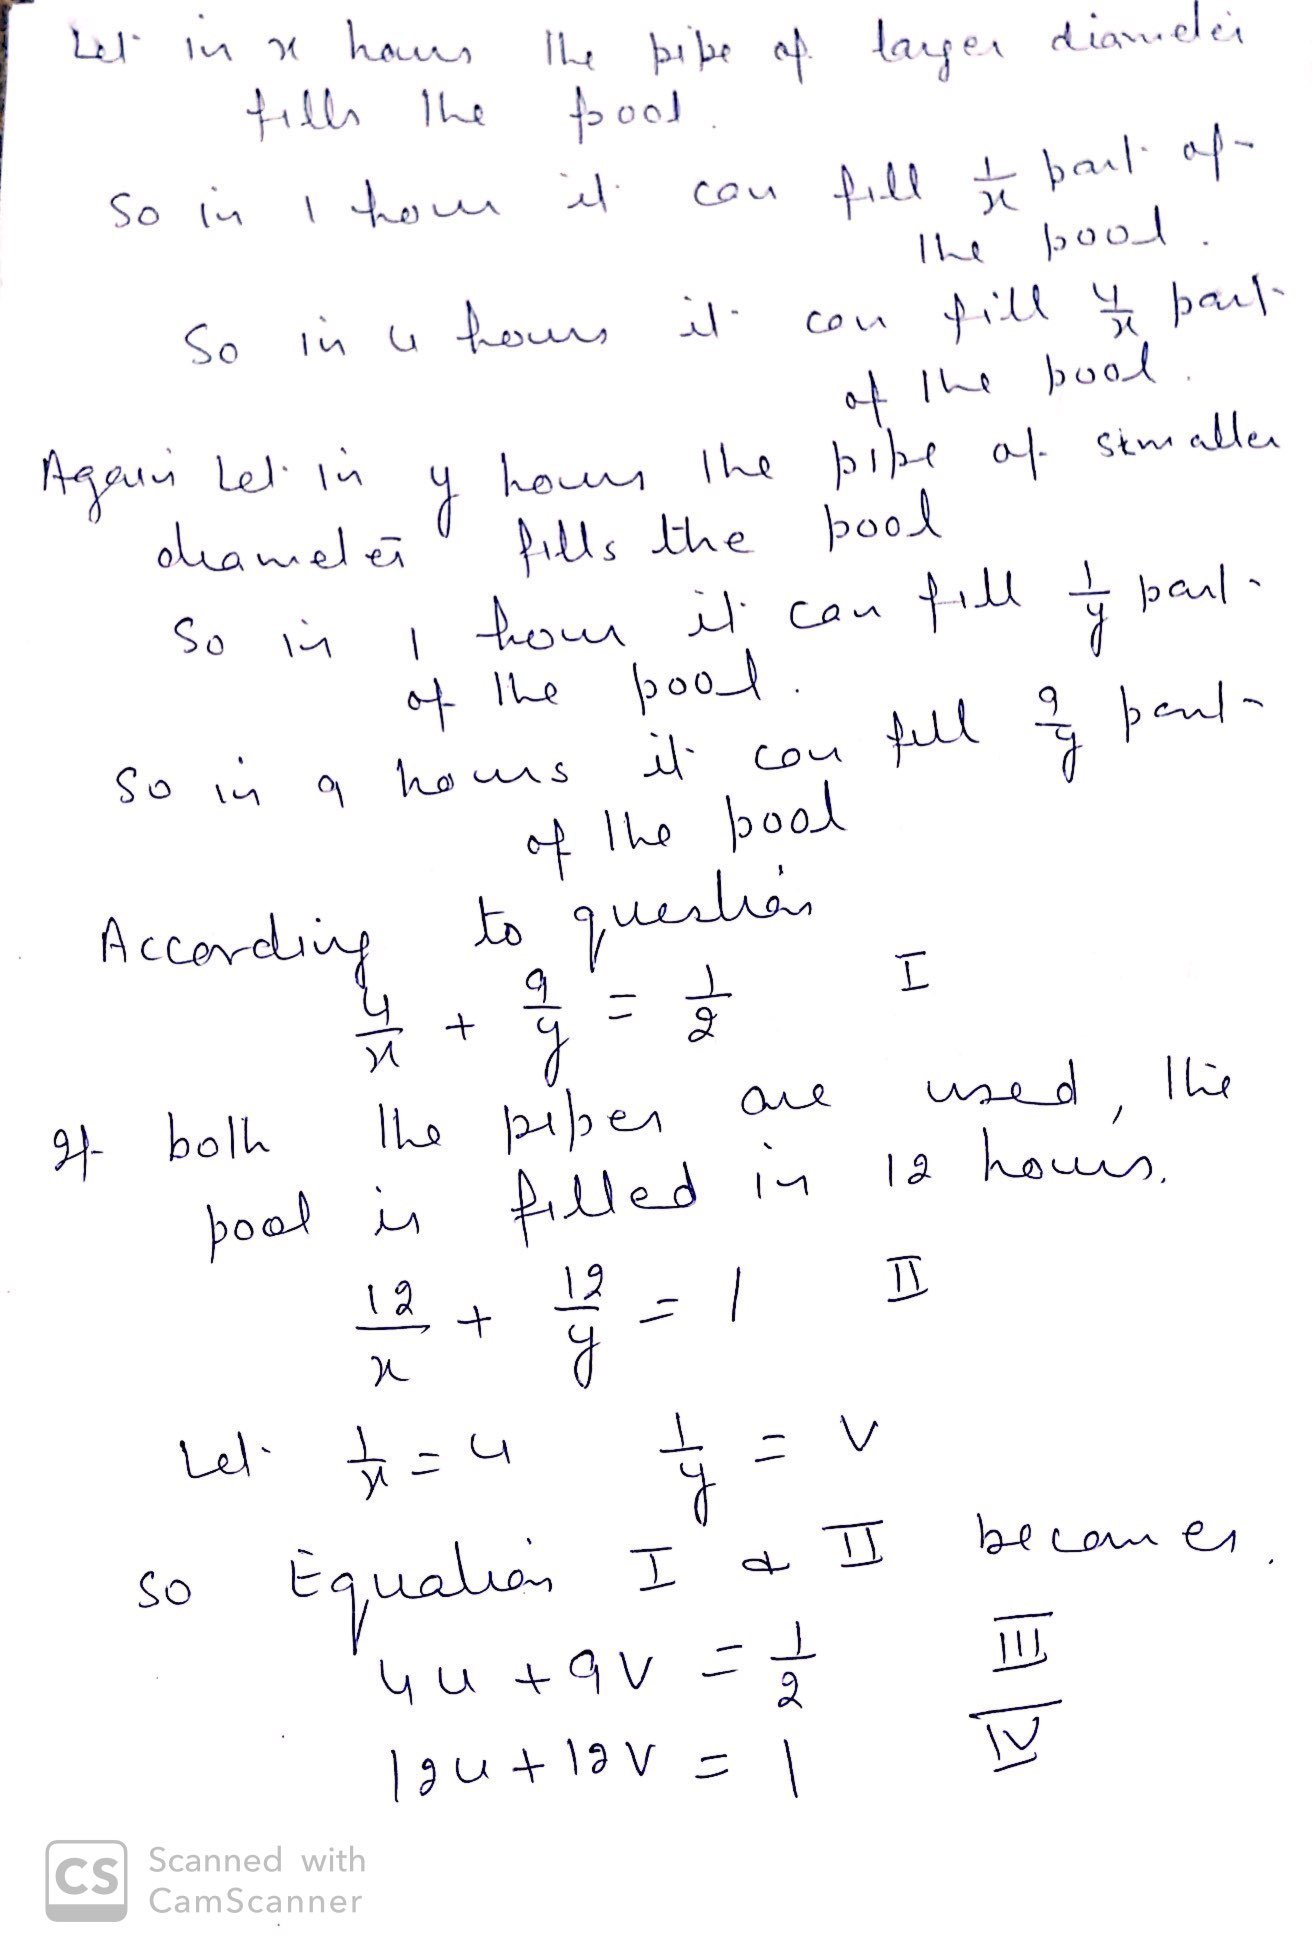 Let in x hours the pipe of larger diameter
fills the pool.
So in 1 hour it can fill 1/x part of
the pool.
So in 4 hours it can fill 4/x part
of the pool.
Again Let in y hours the pipe of smaller
diameter fills the pool
So in 1 hour it can fill 1/y part
of the pool.
So in 9 hours it can fill 9/y part
of the pool
According to question
4/x + 9/y = 1/2 I
If both the pipes are used, the
pool is filled in 12 hours.
12/x + 12/y = 1 II
Let 1/x = u 1/y = v
So Equation I & II becomes.
4u + 9v = 1/2 III
12u + 12v = 1 IV
CS Scanned with
CamScanner